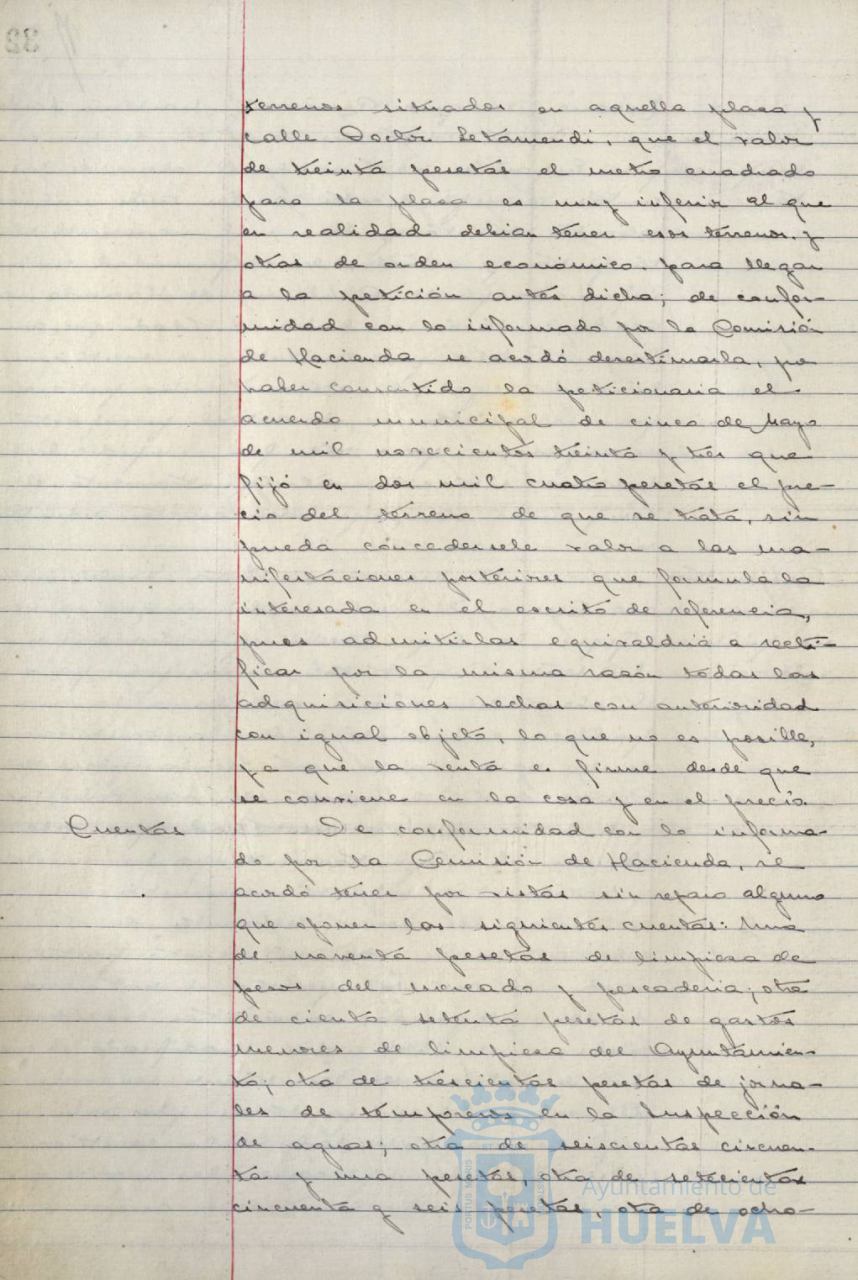 32
terrenos situados en aquella plaza y
calle Doctor Letamendi, que el valor
de treinta pesetas el metro cuadrado
para la plaza es muy inferior al que
en realidad debian tener esos terrenos, y
otras de orden económico, para llegar
a la petición antes dicha; de confor-
midad con lo informado por la Comisión
de Hacienda se acordó desestimarla, por
haber consentido la peticionaria el
acuerdo municipal de cinco de Mayo
de mil novecientos treinta y tres que
fijó en dos mil cuatro pesetas el pre-
cio del terreno de que se trata, sin
pueda concedersele valor a las ma-
nifestaciones posteriores que formula la
interesada en el escrito de referencia,
pues admitirlas equivaldria a recti-
ficar por la misma razón todas las
adquisiciones hechas con anterioridad
con igual objeto, lo que no es posible,
ya que la venta es firme desde que
se conviene en la cosa y en el precio.
Cuentas De conformidad con lo informa-
do por la Comisión de Hacienda, se
acordó tener por vistas sin reparo alguno
que oponer las siguientes cuentas: Una
de noventa pesetas de limpieza de
pesos del mercado y pescaderia; otra
de ciento setenta pesetas de gastos
menores de limpieza del Ayuntamien-
to; otra de trescientas pesetas de jorna-
les de temporeros en la Inspección
de aguas; otra de seiscientas cincuen-
ta y una pesetas, otra de setecientas
cincuenta y seis pesetas, otra de ocho-
Ayuntamiento de
HUELVA